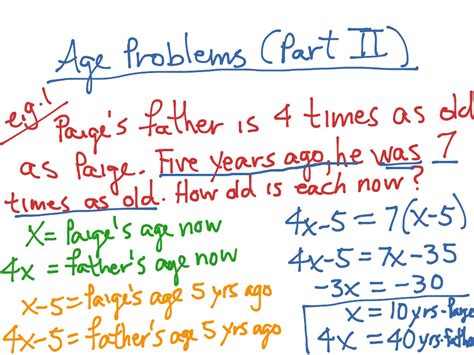 Age Problems (Part II)
e.g.1
Paige's father is 4 times as old
as Paige. Five years ago, he was 7
times as old. How old is each now?
x = Paige's age now
4x = father's age now
x-5 = Paige's age 5 yrs ago
4x-5 = father's age 5 yrs ago
4x-5 = 7(x-5)
4x-5 = 7x-35
-3x = -30
x = 10yrs-Paige
4x = 40yrs-father